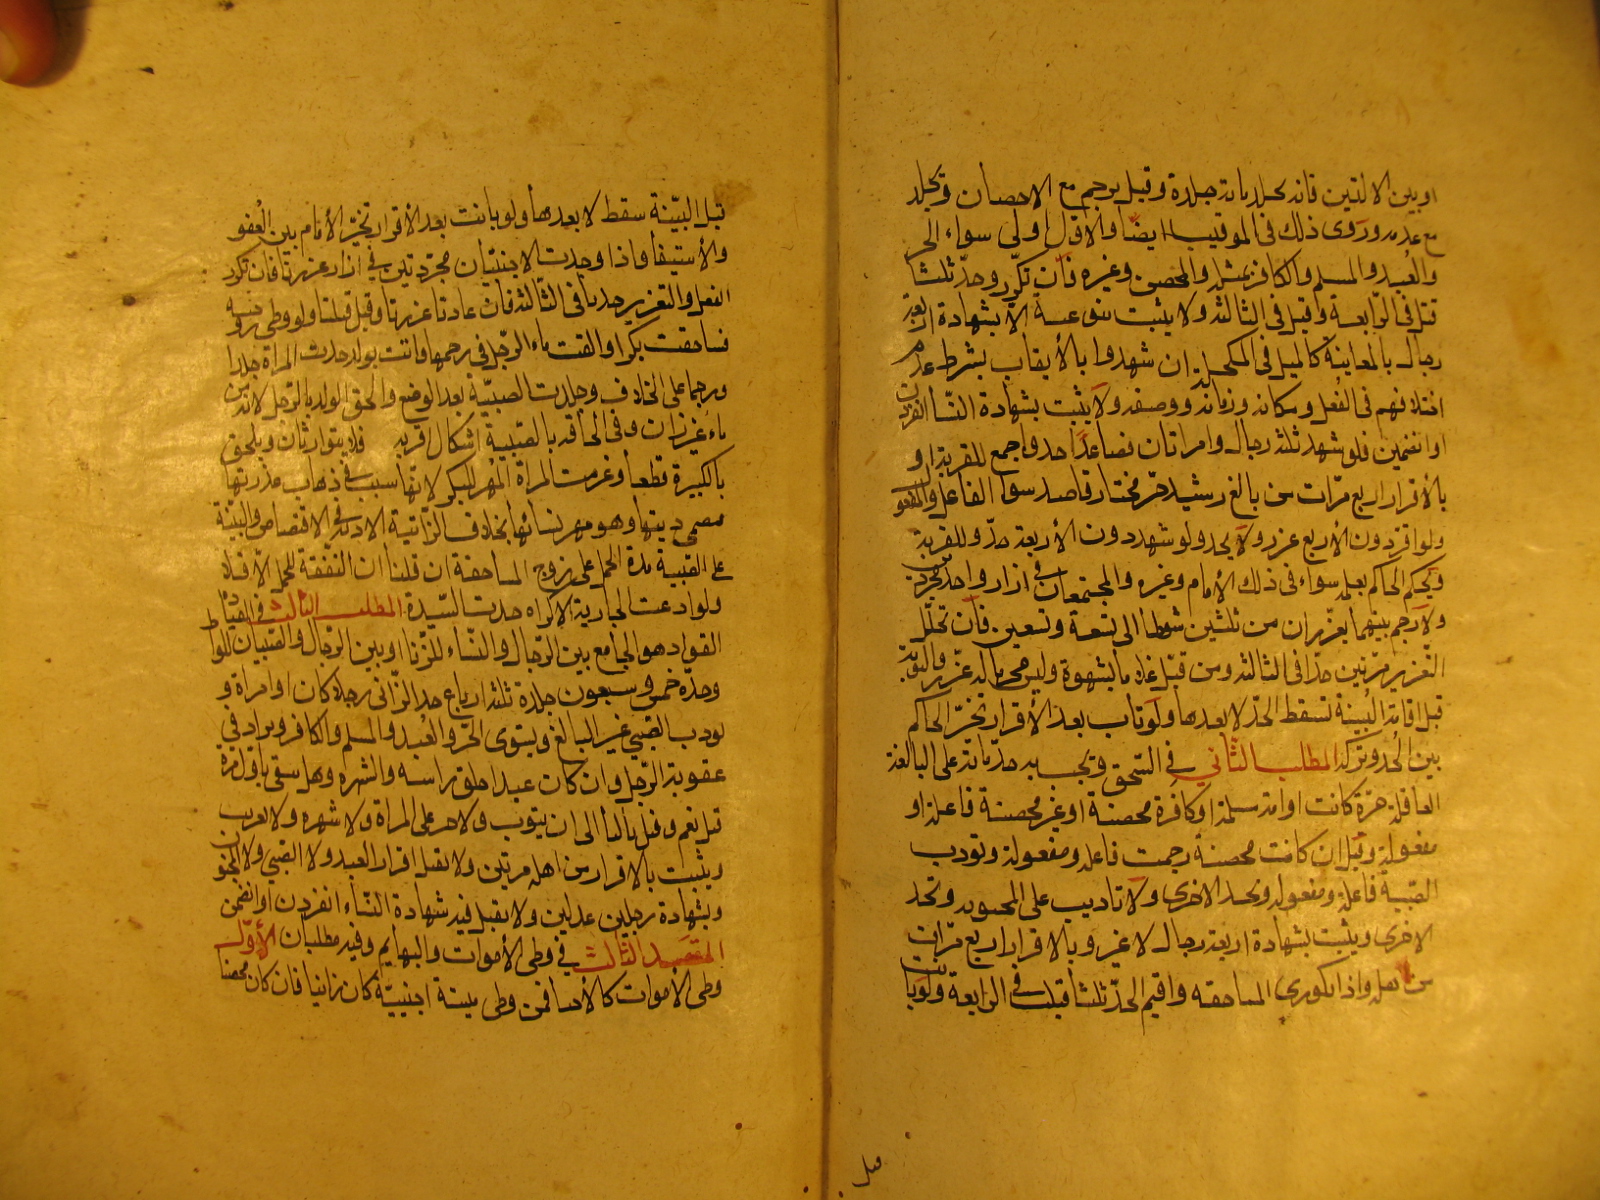 او بين الاليتين فانه يجلد مائة جلدة وقيل يرجم مع الاحصان ويجلد
مع عدمه وروى ذلك في الموقب ايضا والاول اولى سواء الحر
والعبد والمسلم والكافر بمثله والمحصن وغيره فان تكرر وحد ثلثا
قتل في الرابعة وقيل في الثالثة ولا يثبت بنوعيه الا بشهادة اربعة
رجال بالمعاينة كالميل في المكحلة ان شهدوا بالايقاب بشرط عدم
اختلافهم في الفعل ومكانه وزمانه ووصفه ولا يثبت بشهادة النساء انفردن
او انضممن فلو شهد ثلثة رجال وامراتان فصاعدا حد واجمع للفرية او
بالاقرار اربع مرات من بالغ رشيد حر مختار قاصد سواء الفاعل والمفعول
ولو اقر دون الاربع عزر ولا يحد ولو شهد دون الاربعة حد وللفرية
ويحكم الحاكم بعلمه سواء في ذلك الامام وغيره والمجتمعان في ازار واحد مجردين
ولا رحم بينهما يعزران من ثلثين سوطا الى تسعة وتسعين فان تخلل
التعزير مرتين حدا في الثالثة ومن قبل غلاما بشهوة وليس محرما له عزر والتوبة
قبل اقامة البينة تسقط الحد لا بعدها ولو تاب بعد الاقرار تخير الحاكم
بين الحد وتركه المطلب الثاني في السحق ويجب به حد مائة على البالغة
العاقلة حرة كانت او امة مسلمة او كافرة محصنة او غير محصنة فاعلة او
مفعولة وقيل ان كانت محصنة رجمت فاعلة ومفعولة وتودب
الصبية فاعلة ومفعولة وتحد الاخرى ولا تاديب على المجنونة وتحد
الاخرى ويثبت بشهادة اربعة رجال لا غير وبالاقرار اربع مرات
من اهله واذا تكررت المساحقه واقيم الحد ثلثا قتلت في الرابعة ولو تابت
قبل
قبل البينة سقط لا بعدها ولو تابت بعد الاقرار تخير الامام بين العفو
والاستيفاء واذا وجدت الاجنبيتان مجردتين في ازار عزرتا فان تكرر
الفعل والتعزير حدتا في الثالثة فان عادتا عزرتا وقيل قتلتا ولو وطي زوجته
فساحقت بكرا والقت ماء الرجل في رحمها واتت بولد حدت المراة جلدا
ورجما على الخلاف وجلدت الصبية بعد الوضع والحق الولد بالرجل لانه من
ماء غير زان وفي الحاقه بالصبية اشكال اقربه فلا يتوارثان ويلحق
بالكبيرة قطعا وغرمت المراة المهر للبكر لانها سبب في ذهاب عذرتها
فتضمن ديتها وهو مهر نسائها بخلاف الزانية الاذنة في الاقتضاض والبينة
على الصبية مدة الحمل على زوج المساحقة ان قلنا ان النفقة للحمل والا فلا
ولو ادعت الجارية الاكراه حدت السيدة المطلب الثالث في القيادة
القواد هو الجامع بين الرجال والنساء للزنا او بين الرجال والصبيان للواط
وحده خمس وسبعون جلدة ثلثة ارباع حد الزاني رجلا كان او امراة و
يودب الصبي غير البالغ ويستوى الحر والعبد والمسلم والكافر ويزاد في
عقوبة الرجل وان كان عبدا حلق راسه والشهره وهل ينفى باول مرة
قيل نعم وقيل بالثانية الى ان يتوب ولا جز على المراة ولا شهره ولا تغريب
ويثبت بالاقرار من اهله مرتين ولا يقبل اقرار العبد ولا الصبي ولا المجنون
وبشهادة رجلين عدلين ولا يقبل فيه شهادة النساء انفردن او انضممن
المقصد الثالث في وطى الاموات والبهايم وفيه مطلبان الاول
وطى الاموات كالاحياء فمن وطى ميتة اجنبية كان زانيا فان كان محصنا